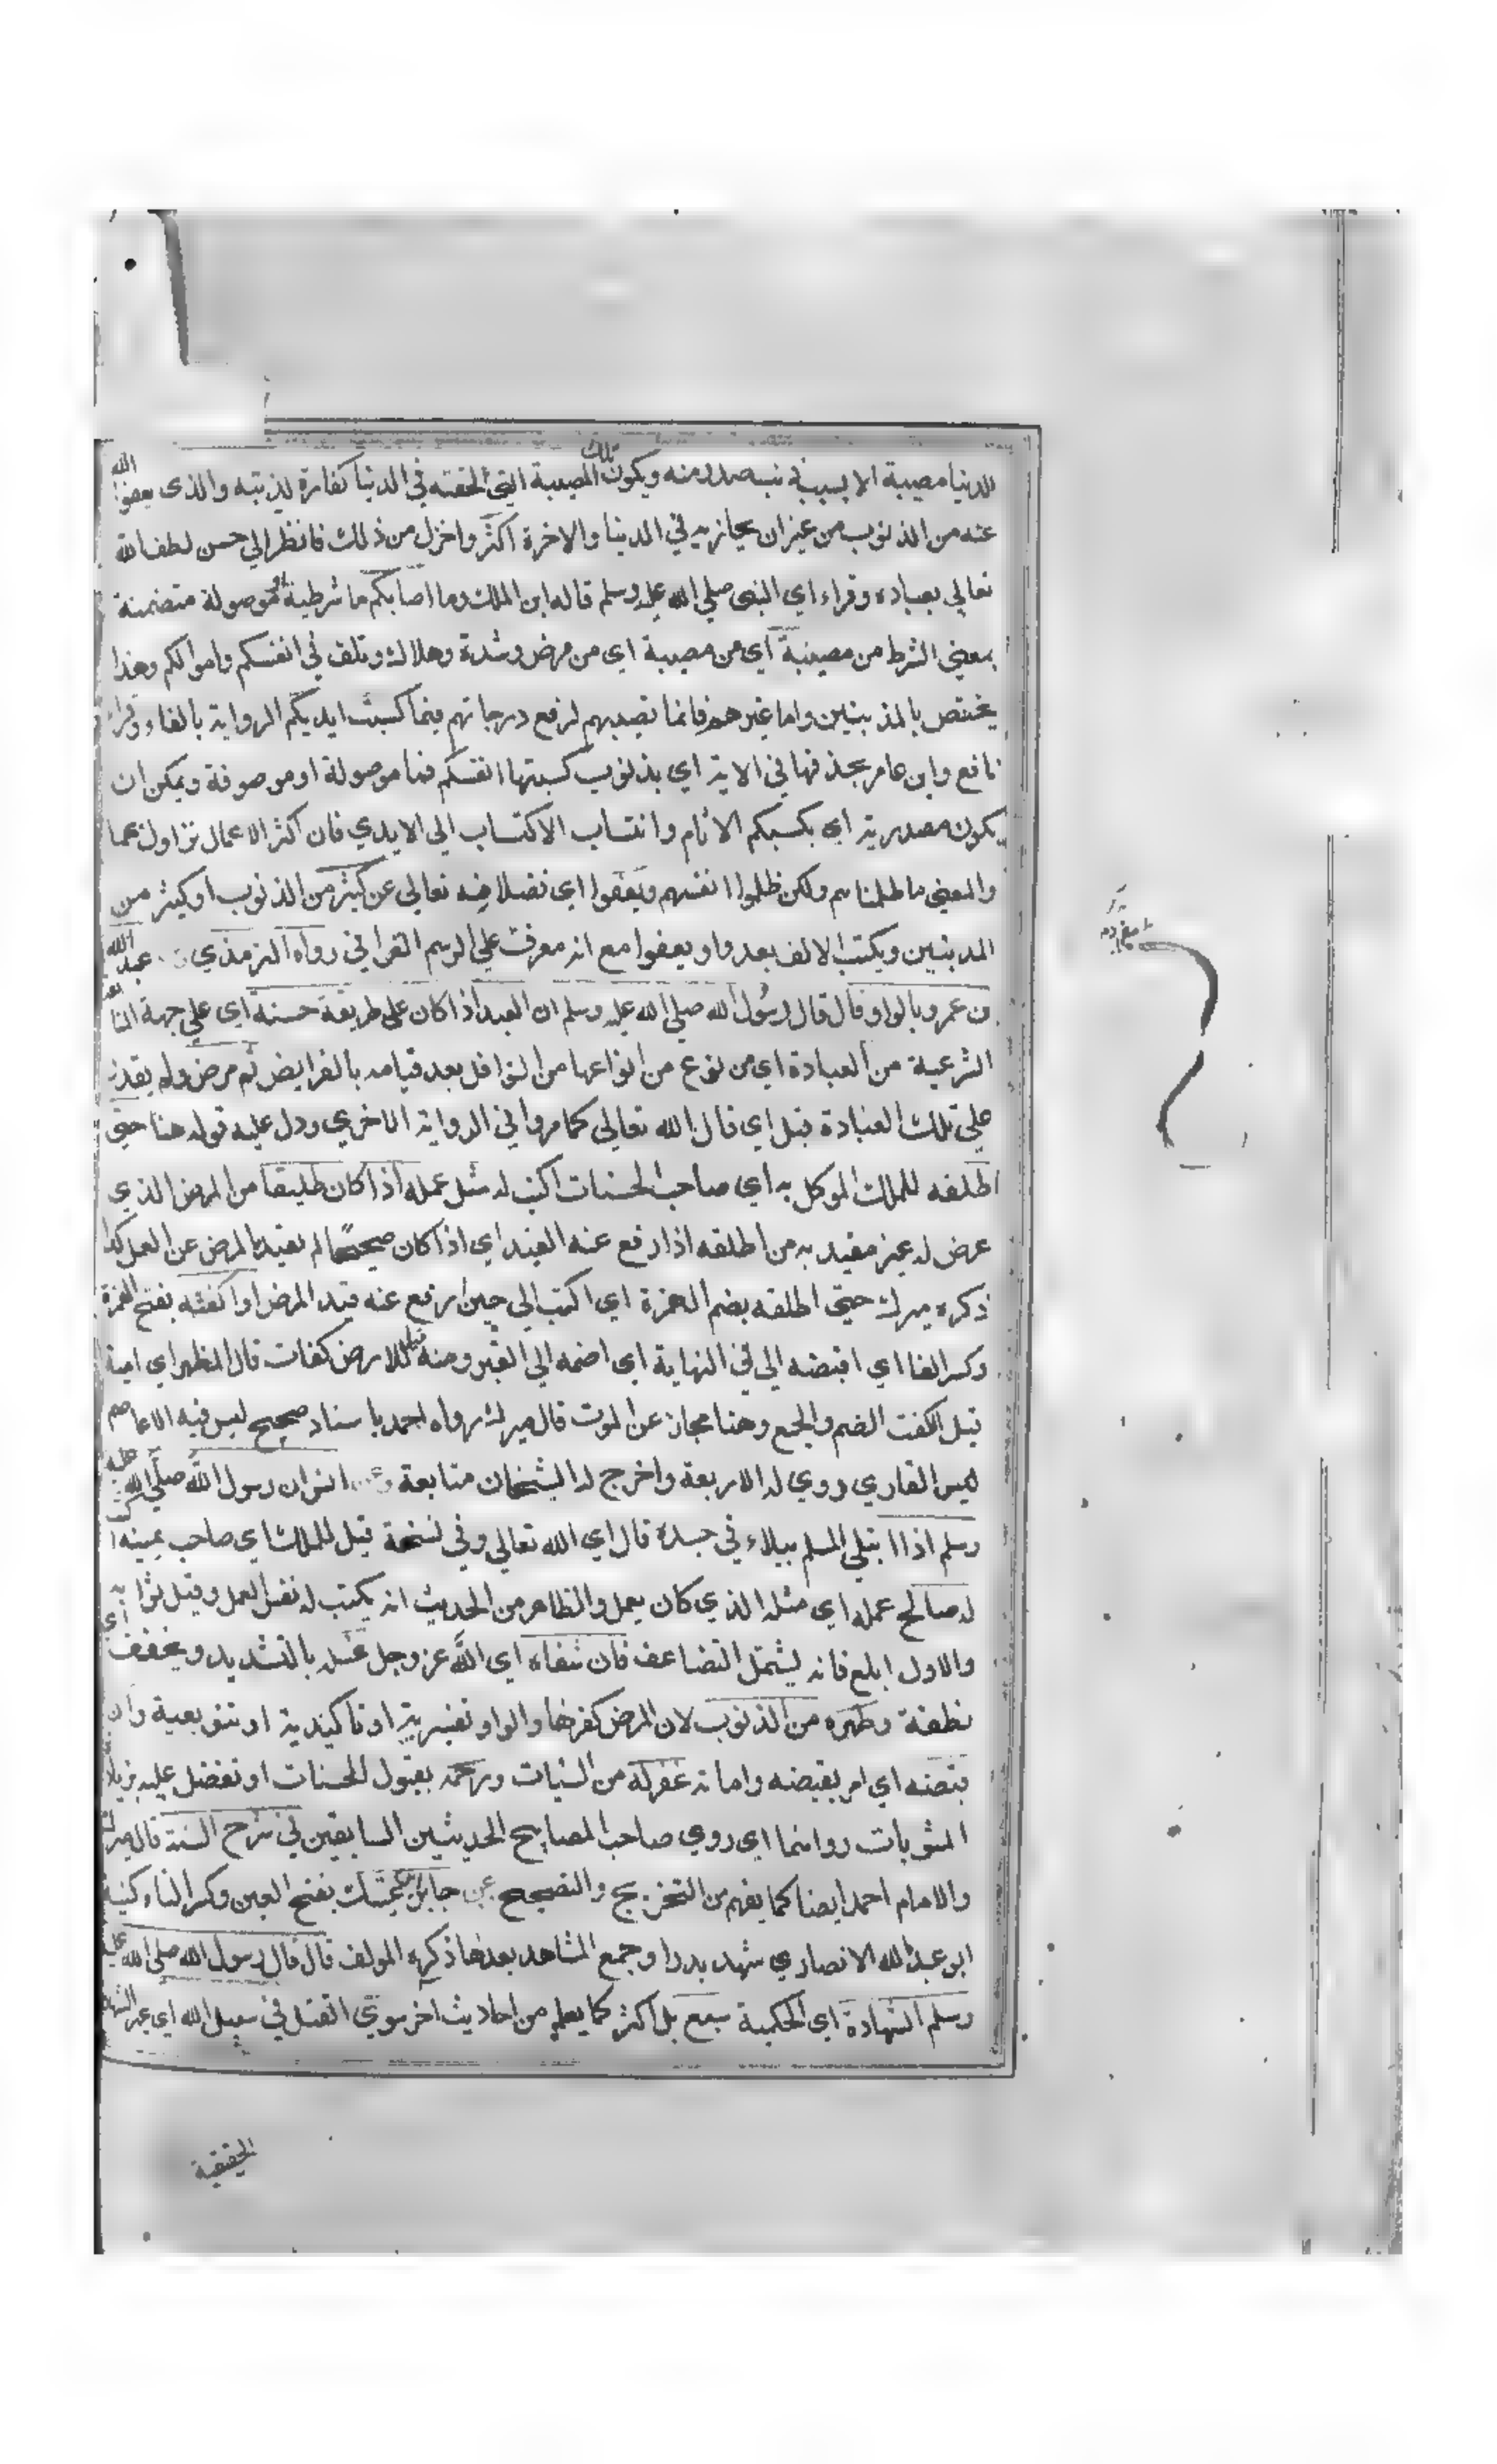 الدنيا مصيبة الا بسبب ذنب صدر منه ويكون تلك المصيبة التي لحقته في الدنيا كفارة لذنبه والذى يعفوا الله
عنه من الذنوب من غير ان يجازيه في الدنيا والاخرة اكثر واخزل من ذلك فانظر الي حسن لطف الله
تعالي بعباده وقراء اي النبى صلي الله عليه وسلم قاله ابن الملك وما اصابكم ما شرطية او موصولة متضمنة
بمعني الشرط من مصيبة اي من مصيبة اى من مرض وشدة وهلاك وتلف في انفسكم واموالكم وهذا
يختص بالمذنبين واما غيرهم فانما تصيبهم لرفع درجاتهم فبما كسبت ايديكم الرواية بالفاء وقراء
نافع وابن عامر بحذفها في الاية اي بذنوب كسبتها انفسكم فما موصولة او موصوفة ويمكن ان
يكون مصدرية اي بكسبكم الاثام وانتساب الاكتساب الي الايدي فان اكثر الاعمال تزاول بها
والمعني ما ظلمناهم ولكن ظلموا انفسهم ويعفوا اي فضلا منه تعالي عن كثير من الذنوب او كثير من
المذنبين ويكتب الالف بعد واو يعفوا مع انه معرف علي الرسم القراني رواه الترمذي وعن عبد الله
بن عمرو بالواو قال قال رسول الله صلي الله عليه وسلم ان العبد اذا كان على طريقة حسنة اي علي جهة المتابعة
الشرعية من العبادة اي من نوع من انواعها من النوافل بعد قيامه بالفرايض ثم مرض ولم يقدر
علي تلك العبادة قيل اي قال الله تعالي كما مر في الرواية الاخري ودل عليه قوله هنا حتي
اطلقه للملك الموكل به اي صاحب الحسنات اكتب له مثل عمله اذا كان طليقا من المرض الذي
عرض له غير مقيد به من اطلقه اذا رفع عنه القيد اي اذا كان صحيحا لم يقيد بالمرض عن العمل كذا
ذكره ميرك حتي اطلقه بضم الهمزة اي اكتب الي حين ارفع عنه قيد المرض او اكفته بفتح الهمزة
وكسر الفا اي اقبضه الي في النهاية اي اضمه الي القبر ومنه قيل للارض كفات قال المظهر اي اميته
قيل الكفت الضم والجمع وهنا مجاز عن الموت قال ميرك رواه احمد باسناد صحيح ليس فيه الا عاصم
ليس القاري روي له الاربعة واخرج له الشيخان متابعة وعن انس ان رسول الله صلي الله عليه
وسلم اذا ابتلي المسلم ببلاء في جسده قال اي الله تعالي وفي نسخة قيل للملك اي صاحب يمينه اكتب
له صالح عمله اي مثله الذي كان يعمل والظاهر من الحديث انه يكتب له نفس العمل وقيل ثوابه
والاول ابلغ فانه يشتمل التضاعف فان شفاه اي الله عز وجل غسله بالتشديد ويخفف اي
نظفه وطهره من الذنوب لان المرض كفرها والواو تفسيرية او تاكيدية او تنويعية وان
قبضه اي امر بقبضه واماته غفر له من السئيات ورحمه بقبول الحسنات او تفضل عليه بزيادة
المثوبات رواهما اي روي صاحب المصابيح الحديثين السابقين في شرح السنة قال ميرك
والامام احمد ايضا كما يفهم من التخريج والتصحيح عن جابر بن عتيك بفتح العين وكسر التاء كنيته
ابو عبد الله الانصاري شهد بدرا وجمع المشاهد بعدها ذكره المولف قال قال رسول الله صلي الله عليه
وسلم الشهادة اي الحكمية سبع بل اكثر كما يعلم من احاديث اخر سوي القتل في سبيل الله اي غير الشهادة
الحقيقية